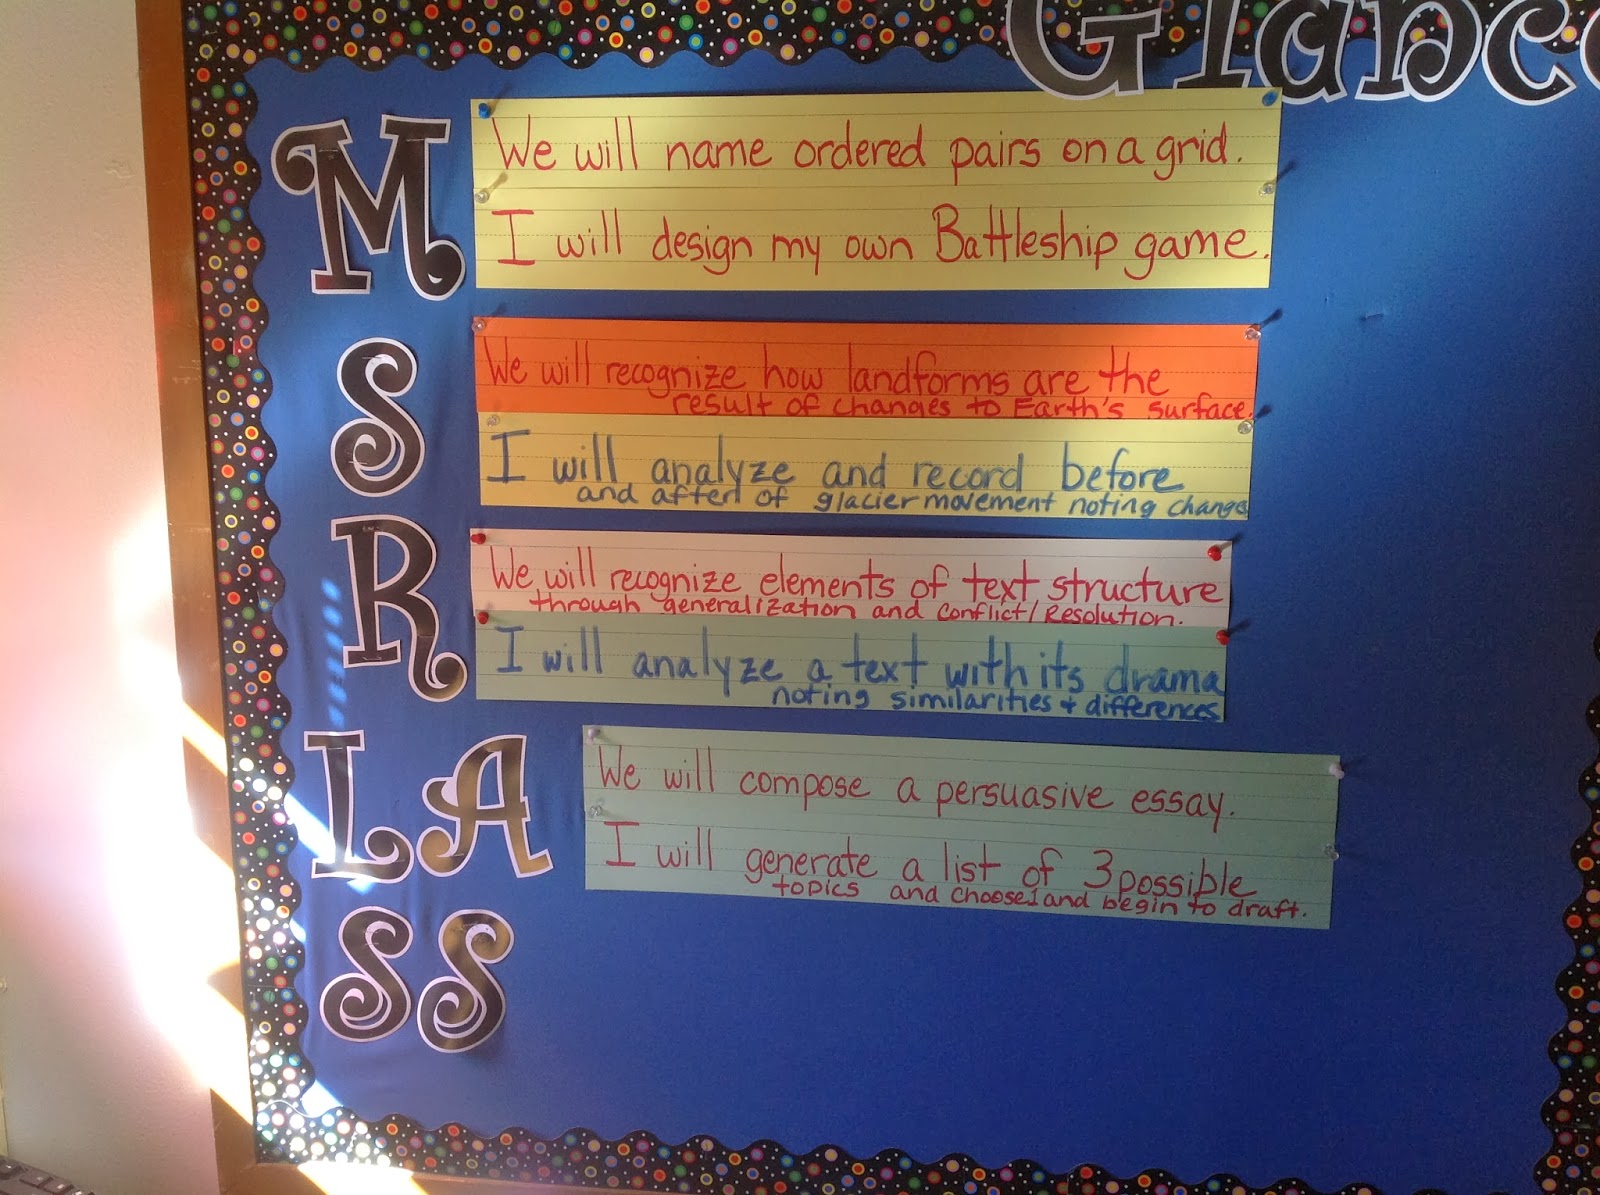 Glance
M
We will name ordered pairs on a grid.
I will design my own Battleship game.
S
We will recognize how landforms are the
result of changes to Earth's surface.
I will analyze and record before
and after of glacier movement noting change
R
We will recognize elements of text structure
through generalization and Conflict/Resolution.
I will analyze a text with its drama
noting similarities + differences
LA
We will compose a persuasive essay.
I will generate a list of 3 possible
topics and choose 1 and begin to draft.
SS